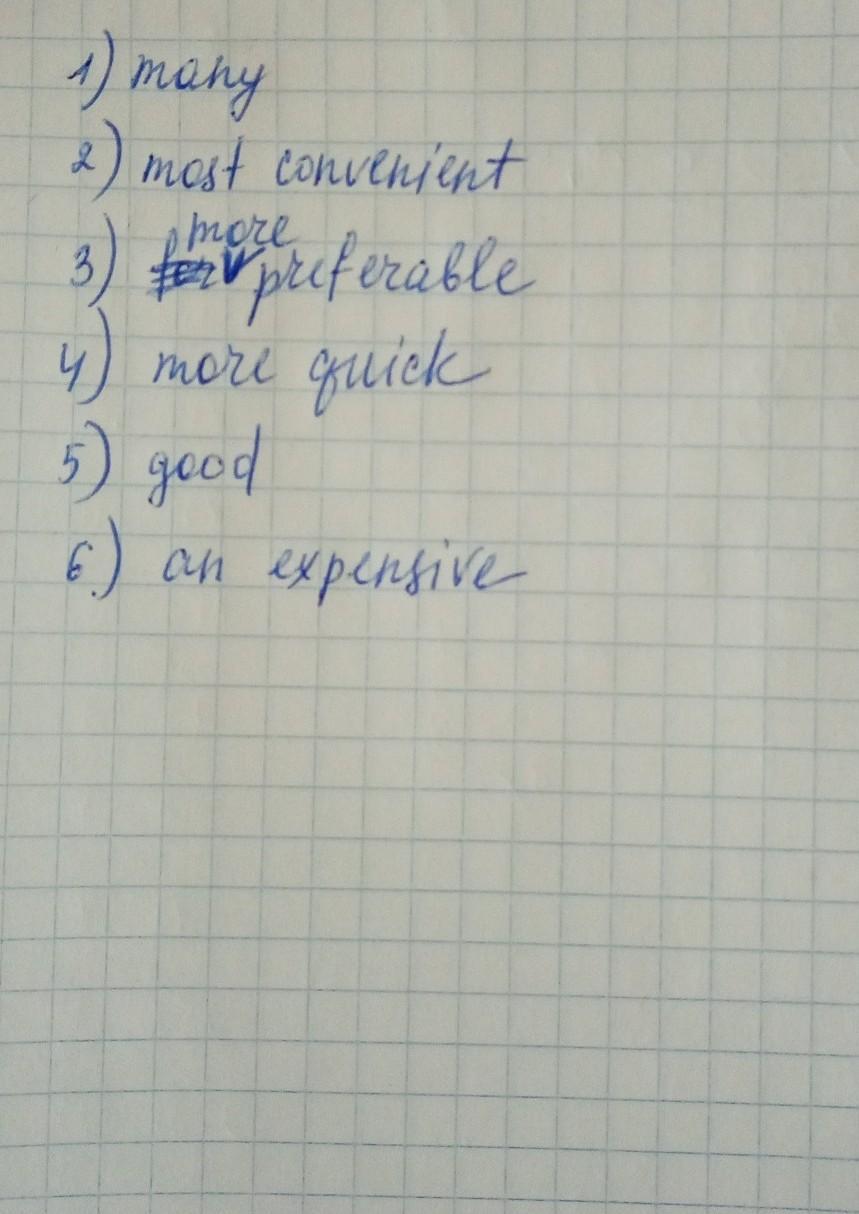 1) many
2) most convenient
more
3) preferable
4) more quick
5) good
6.) an expensive